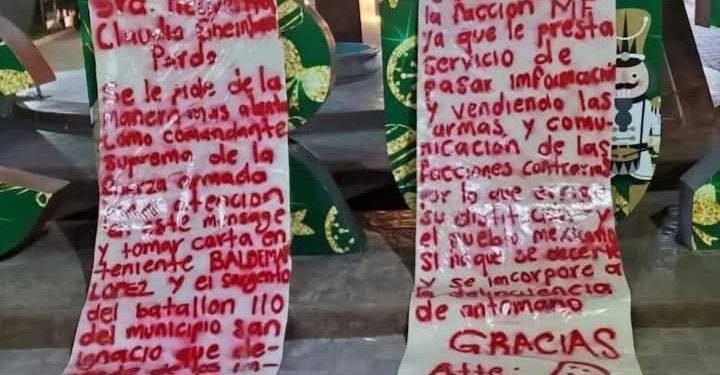 Sra.
Claudia Sheinbam
Pardo
Se le pide de la
manera mas atenta
como comandante
suprema de la
fuerza armada
atencion
en este mensage
y tomar carta en
teniente BALDEMAR
LOPEZ y el sargento
del batallon 110
del municipio san
ignacio que
la faccion MF
ya que le presta
servicio de
pasar informacion
y vendiendo las
armas y comu-
nicacion de las
facciones contrarias
por lo que
su y
el pueblo mexicano
Si no que se
y se incorpore a
la delincuencia
de antomano
GRACIAS
Atte: